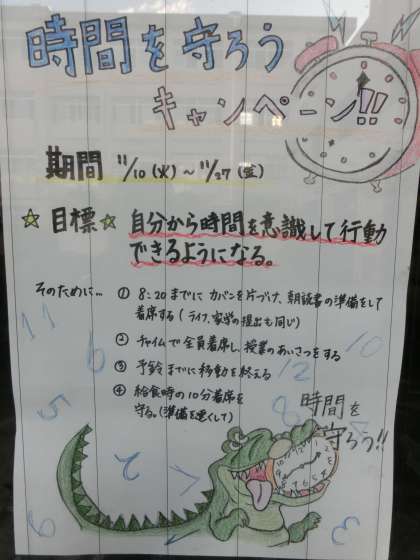 時間を守ろう
キャンペーン!!
期間 11/10(火)〜11/27(金)
☆目標☆ 自分から時間を意識して行動
できるようになる。
そのために…
① 8:20までにカバンを片づけ、朝読書の準備をして
着席する(ライフ、家学の提出も同じ)
② チャイムで全員着席し、授業のあいさつをする
③ 予鈴までに移動を終える
④ 給食時の10分着席を
守る。(準備を速くして)
時間を
守ろう!!
11
10
6
12
5
8
7
4
9